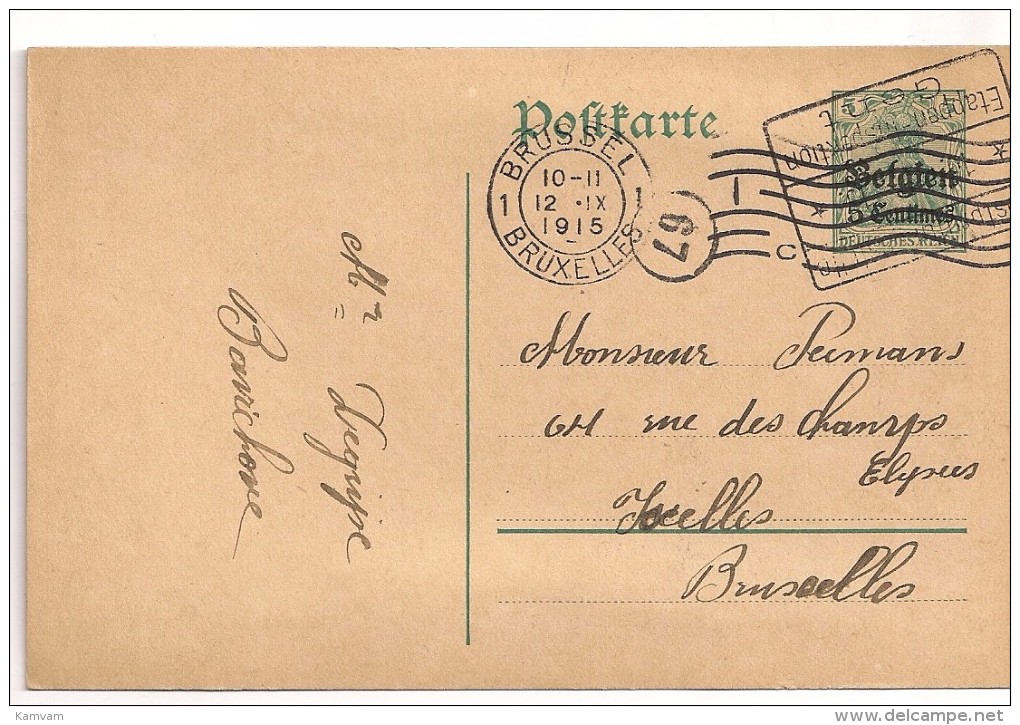 Postkarte
BRUSSEL
1 10-11 1
12 · IX
1915
BRUXELLES
67
Belgien
5 Centimes
DEUTSCHES REICH
Etappen-Inspektion
Gent
C
Monsieur Peemans
64 rue des Champs
Elysees
Ixelles
Bruxelles
Mr Dequipe
Bavichove
Kamvam
delcampe.net